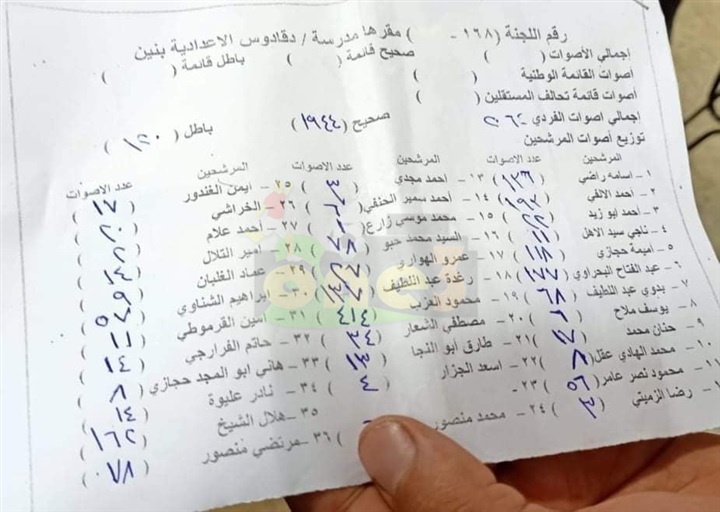 رقم اللجنة (١٦٨ - ) مقرها مدرسة / دقادوس الاعدادية بنين
إجمالي الأصوات ( ) صحيح قائمة ( ) باطل قائمة ( )
أصوات القائمة الوطنية ( )
أصوات قائمة تحالف المستقلين ( )
إجمالي اصوات الفردي صحيح (١٩٤٤) باطل (١٢٠)
توزيع أصوات المرشحين
المرشحين عدد الاصوات المرشحين عدد الاصوات المرشحين عدد الاصوات
١- اسامه راضي ( ) ١٣- احمد مجدي (٣) ٢٥- ايمن الغندور (١٧)
٢- احمد الالفي (١٩٢) ١٤- أحمد سمير الحنفي ( ) ٢٦- الخراشي (٢٠)
٣- احمد ابو زيد (٢٢) ١٥- محمد موسي زارع ( ) ٢٧- أحمد علام (٢٢)
٤- ناجي سيد الاهل (١١) ١٦- السيد محمد حبو (٧٨) ٢٨- التلال (١٤)
٥- اميمة حجازي (١١٨) ١٧- عمرو الهواري ( ) ٢٩- عماد الغلبان (٩)
٦- عبد الفتاح البحراوي (١٧٧) ١٨- رغدة عبد اللطيف ( ) ٣٠- ابراهيم الشناوي (٥٧)
٧- بدوي عبد اللطيف (٦٨) ١٩- محمود العزب (٤١٤) ٣١- امين القرموطي (١١)
٨- يوسف ملاح (٦) ٢٠- مصطفي الشعار (٣٤) ٣٢- حاتم الفرارجي (١٤)
٩- حنان محمد (١٧) ٢١- طارق ابو النجا (١٣) ٣٣- هاني ابو المجد حجازي (٨)
١٠- محمد الهادي عقل (٨) ٢٢- اسعد الجزار (٤) ٣٤- نادر عليوة (١٤)
محمود نصر عامر (٥٦) ٢٣- ٣٥- هلال الشيخ (١٦٢)
رضا الزميتي (٣) ٢٤- محمد منصور ٣٦- مرتضي منصور